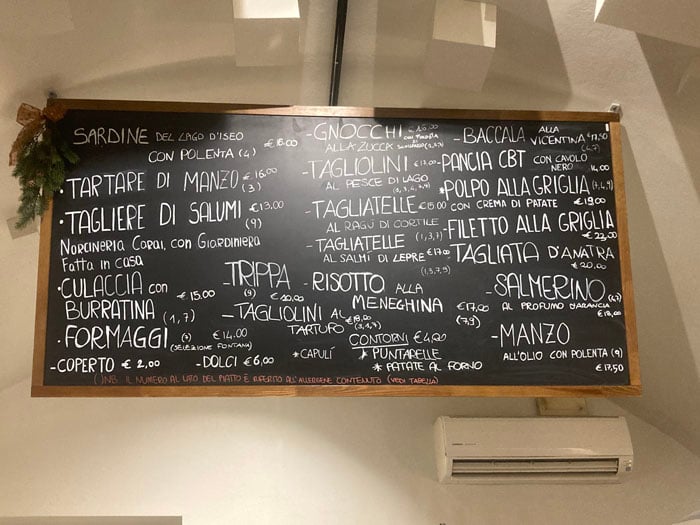 SARDINE DEL LAGO D'ISEO
CON POLENTA (4) €16.00
· TARTARE DI MANZO € 16.00
(3)
· TAGLIERE DI SALUMI € 13.00
(9)
Norcineria Corai, con Giardiniera
Fatta in casa
· CULACCIA con
BURRATINA (1,7) € 15.00
· FORMAGGI (7) € 14.00
(SELEZIONE FONTANA)
- COPERTO € 2,00
- DOLCI € 6,00
- TRIPPA
(9) € 10,00
- TAGLIOLINI AL €18.00
TARTUFO (1,3,7)
- GNOCCHI
ALLA ZUCCA
- TAGLIOLINI € 17,00
AL PESCE DI LAGO
- TAGLIATELLE € 15.00
AL RAGÙ DI CORTILE
- TAGLIATELLE (1,3,7)
AL SALMI DI LEPRE €17.00
(1,3,7,9)
- RISOTTO ALLA
MENEGHINA € 17,00
(7,9)
CONTORNI € 4,00
* CAPULÍ
* PUNTARELLE
* PATATE AL FORNO
- BACCALA ALLA
VICENTINA € 17,50
(4,7)
- PANCIA CBT CON CAVOLO
NERO 14,00
* POLPO ALLA GRIGLIA
CON CREMA DI PATATE € 19,00
- FILETTO ALLA GRIGLIA
€ 22,00
TAGLIATA D'ANATRA
€ 20,00
- SALMERINO (4,7)
AL PROFUMO D'ARANCIA
€ 18,00
- MANZO
ALL'OLIO CON POLENTA (9)
€ 17,50
( ) NB. IL NUMERO AL LATO DEL PIATTO È RIFERITO ALL'ALLERGENE CONTENUTO (VEDI TABELLA)